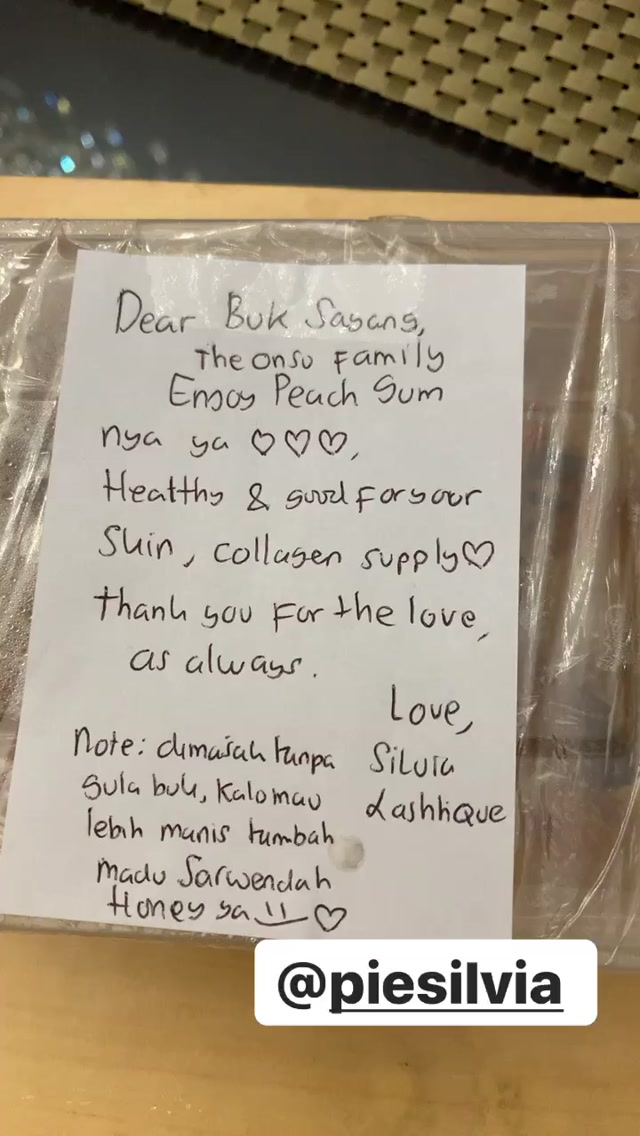 Dear Buk Sayang,
The onsu Family
Enjoy Peach Gum
nya ya ♡♡♡,
Healthy & good for your
Skin, collagen supply♡
thank you for the love,
as always.
Love,
Silvia
Lashtique
Note: dimasak tanpa
gula buk, Kalo mau
lebih manis tambah
madu Sarwendah
Honey ya ♡
@piesilvia